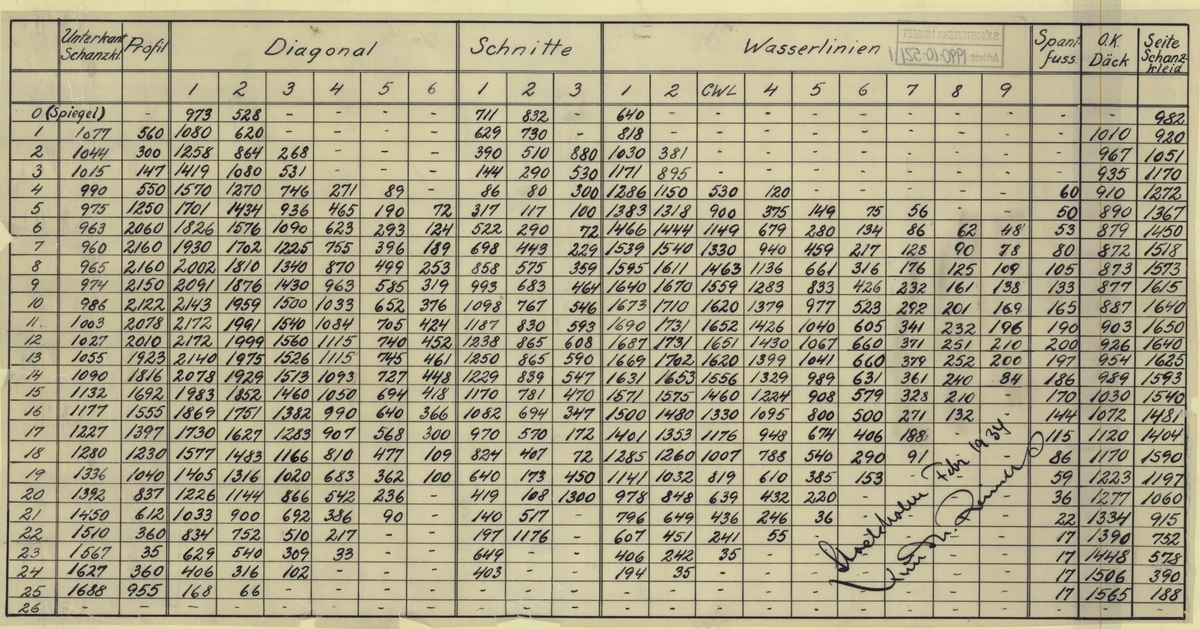 Unterkant Schanzkl. Profil Diagonal Schnitte Wasserlinien Spant-fuss O.K. Däck Seite Schanz-kleid
SJÖHISTORISKA MUSEET
Arkivnr: 1990-10-521/1
1 2 3 4 5 6 1 2 3 1 2 CWL 4 5 6 7 8 9
0 (Spiegel) - 973 528 - - - - 711 832 - 640 - - 982
1 1077 560 1080 620 - - - - 629 730 - 818 - - - - - - - - 1010 920
2 1044 300 1258 864 268 - - - 390 510 880 1030 381 - - - - - - - 967 1051
3 1015 147 1419 1080 531 - - - 144 290 530 1171 895 - - - - - - - 935 1170
4 990 550 1570 1270 746 271 89 - 86 80 300 1286 1150 530 120 - - - - - 60 910 1272
5 975 1250 1701 1434 936 465 190 72 317 117 100 1383 1318 900 375 149 75 56 - - 50 890 1367
6 963 2060 1826 1576 1090 623 293 124 522 290 72 1466 1444 1149 679 280 134 86 62 48 53 879 1450
7 960 2160 1930 1702 1225 755 396 189 698 443 229 1539 1540 1330 940 459 217 128 90 78 80 872 1518
8 965 2160 2002 1810 1340 870 499 253 858 575 359 1595 1611 1463 1136 661 316 176 125 109 105 873 1573
9 974 2150 2091 1876 1430 963 585 319 993 683 464 1640 1670 1559 1283 833 426 232 161 138 133 877 1615
10 986 2122 2143 1959 1500 1033 652 376 1098 767 546 1673 1710 1620 1379 977 523 292 201 169 165 887 1640
11 1003 2078 2172 1991 1540 1084 705 424 1187 830 593 1690 1731 1652 1426 1040 605 341 232 196 190 903 1650
12 1027 2010 2172 1999 1560 1115 740 452 1238 865 608 1687 1731 1651 1430 1067 660 371 251 210 200 926 1640
13 1055 1923 2140 1975 1526 1115 745 461 1250 865 590 1669 1702 1620 1399 1041 660 379 252 200 197 954 1625
14 1090 1816 2078 1929 1573 1093 727 448 1229 839 547 1631 1653 1556 1329 989 631 361 240 84 186 989 1593
15 1132 1692 1983 1852 1460 1050 694 418 1170 781 470 1571 1575 1460 1224 908 579 328 210 - 170 1030 1540
16 1177 1555 1869 1751 1382 990 640 366 1082 694 347 1500 1480 1330 1095 800 500 271 132 - 144 1072 1481
17 1227 1397 1730 1627 1283 907 568 300 970 570 172 1401 1353 1176 948 674 406 188 115 1120 1404
18 1280 1230 1577 1483 1166 810 477 109 824 407 72 1285 1260 1007 788 540 290 91 - 86 1170 1590
19 1336 1040 1405 1316 1020 683 362 100 640 173 450 1141 1032 819 610 385 153 - - 59 1223 1197
20 1392 837 1226 1144 866 542 236 - 419 108 1300 978 848 639 432 220 - - - 36 1277 1060
21 1450 612 1033 900 692 386 90 - 140 517 - 796 649 436 246 36 - - - 22 1334 915
22 1510 360 834 752 510 217 - - 197 1176 - 607 451 241 55 - - - 17 1390 752
23 1567 35 629 540 309 33 - - 649 - - 406 242 35 - - - - 17 1448 578
24 1627 360 406 316 102 - - - 403 - - 194 35 - - - - - 17 1506 390
25 1688 955 168 66 - - - - - - - - - - - - - - 17 1565 188
26 - - - - - - - - - - - - - - - - - - - - - -
Stockholm Febr 1934